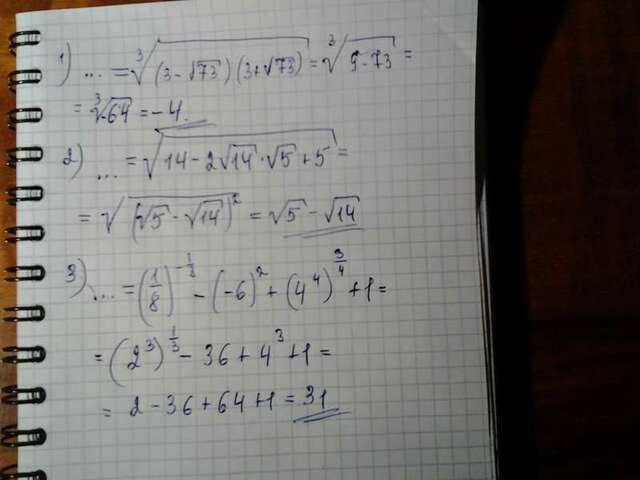 1) ... = ∛((3-√73)(3+√73)) = ∛(9-73) =
= ∛-64 = -4.
2) ... = √(14-2√14·√5+5) =
= √((√5-√14)²) = √5-√14
3) ... = (1/8)^(-1/3) - (-6)² + (4⁴)^(3/4) + 1 =
= (2³)^(1/3) - 36 + 4³ + 1 =
= 2 - 36 + 64 + 1 = 31